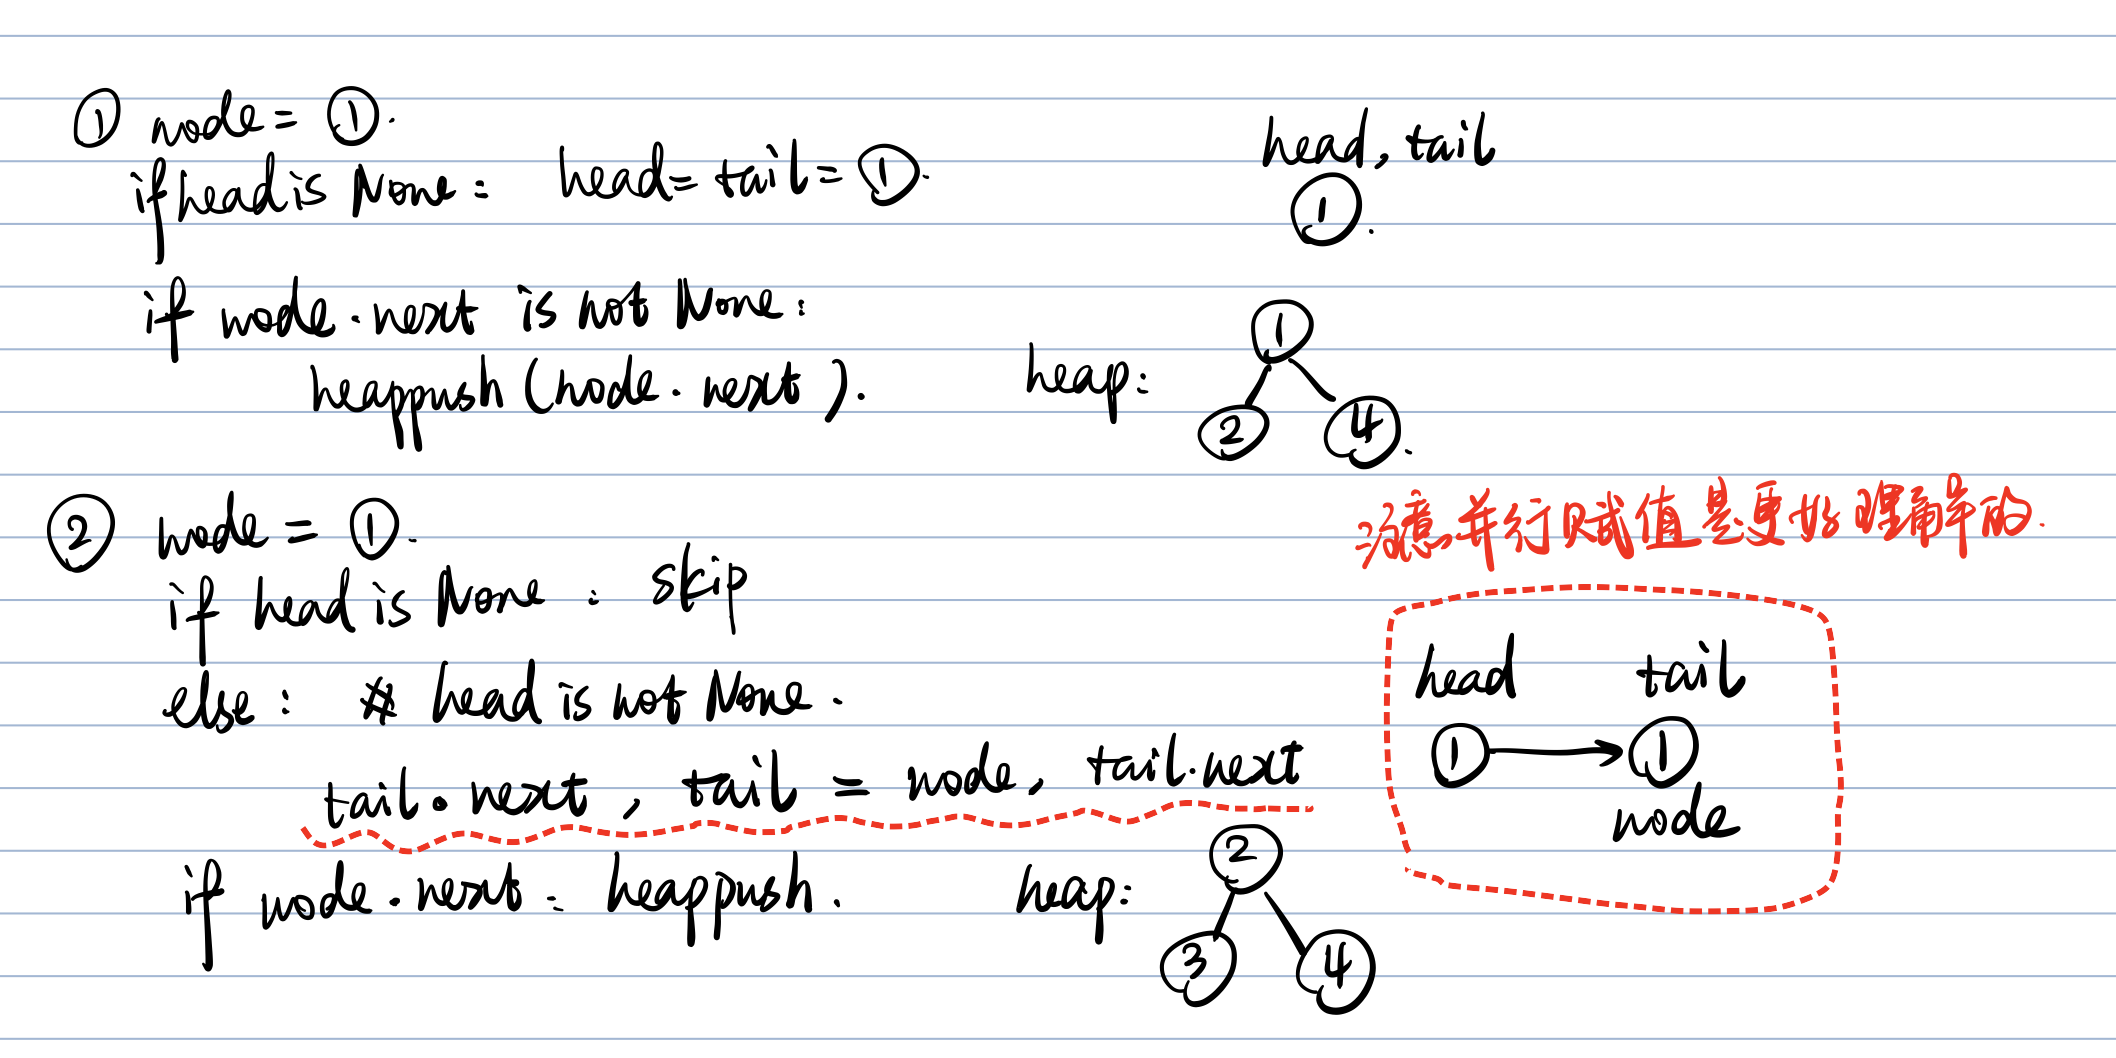 ① node = ①.
if head is None : head = tail = ①.
head, tail
①.
if node.next is not None :
heappush (node.next).
heap:
①
② ④.
② node = ①.
if head is None : skip
注意,并行赋值是更好理解的.
else : # head is not None.
tail.next, tail = node, tail.next
head tail
① ①
node
if node.next : heappush.
heap:
②
③ ④